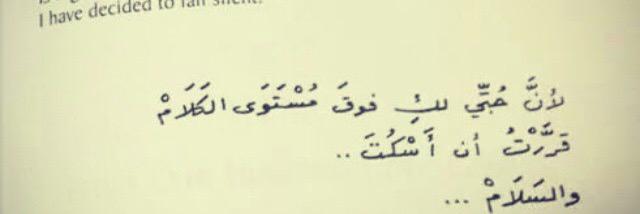 I have decided to fall silent.
لأنَّ حُبِّي لكِ فوقَ مُسْتَوَى الكَلَامْ
قَرَّرْتُ أن أَسْكُتَ ..
والسَلَامْ ...